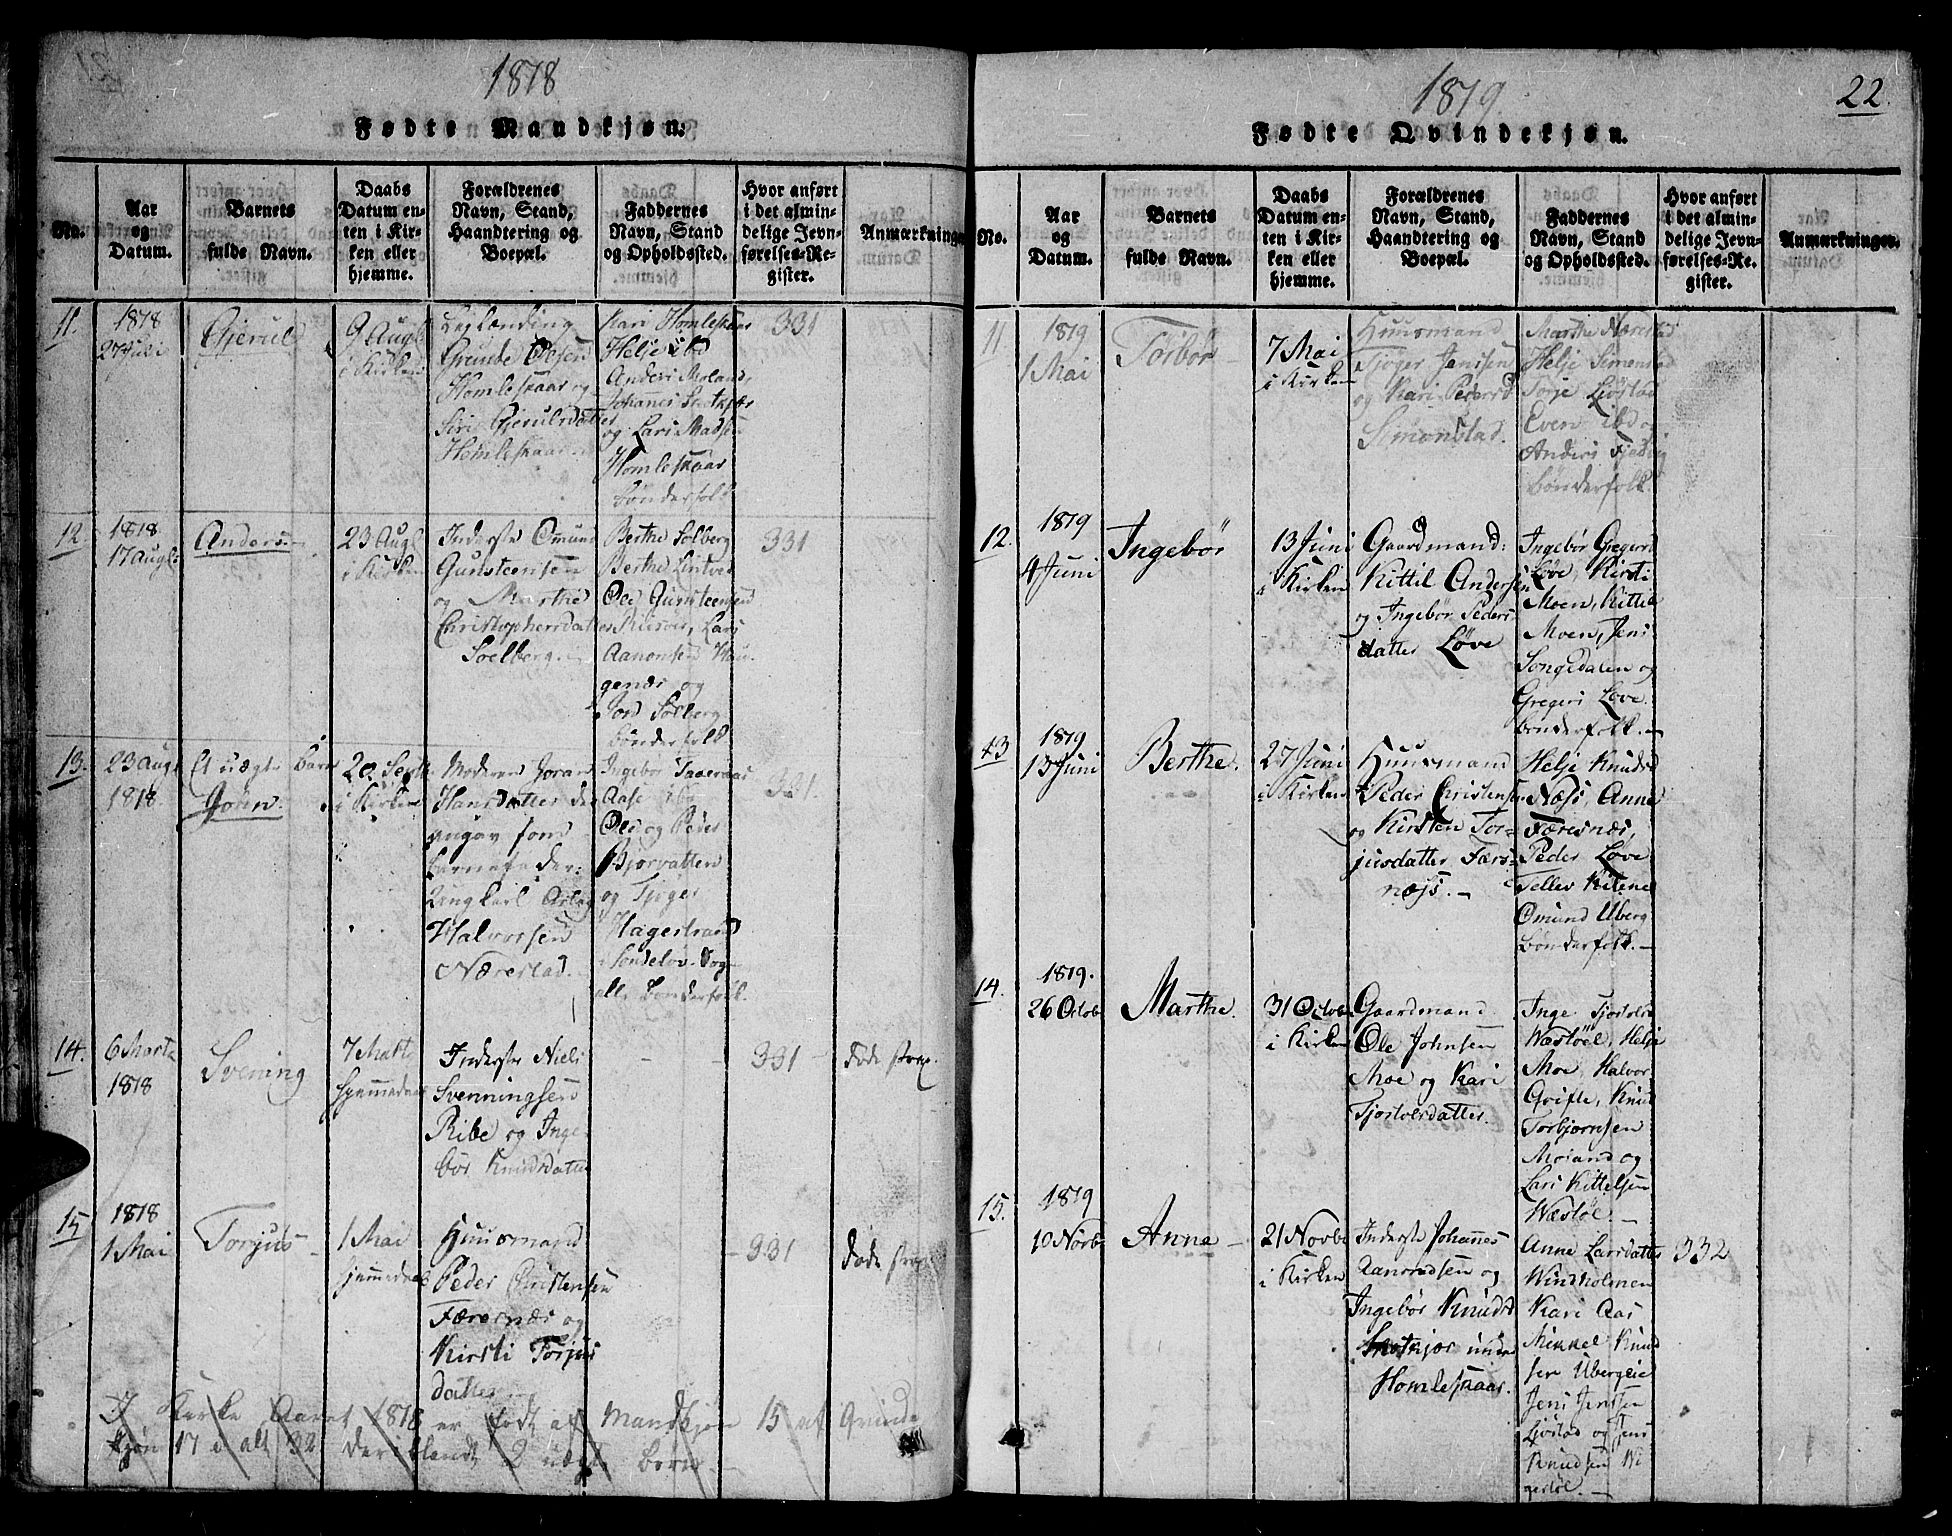 1818
Fødte Mandkjøn.
No.
Aar
og
Datum.
Barnets
fulde Navn.
Daabs
Datum en-
ten i Kir-
ken eller
hjemme.
Forældrenes
Navn, Stand,
Haandtering og
Boepæl.
Faddernes
Navn, Stand
og Opholdssted.
Hvor anført
i det almin-
delige Jevn-
førelses-Re-
gister.
Anmærkninger
11.
1818
27 Juli
Gjerul
9 Augt
i Kirken
Grunde Olesen
Homleskaar og
Siri Gjerulsdatter
Homleskaar
Kari Homleskaar
Helje ibd
Anders Moland,
Johannes
og Lars Madsen
Homleskaar
bønderfolk
331
12
1818
17 Augt
Anders
23 Augt
i Kirken
Inderste Omund
Gunsteensen
og Marthe
Christophersdatter
Soelberg.
Berthe Solberg
Berthe Lintved
Ole Gunsteensen
Lars
Aanonsen Hau
genæs og
Jon Solberg
bønderfolk
331
13.
23 Augt
1818
Et uægte barn
Gonn.
20 Septb
i Kirken
Moderen Joran
Hansdatter der
angav som
barnefader:
Ungkarl Aslag
Halvorsen
Nærestad.
Ingebor
Aase ibd
Ole og Peder
Bjorvatten
og Tjøger
Hagestrand
i Søndeløv Sog
alle bønderfolk.
331.
14.
6 Marts
1818
Svening
7 Marts
hjemmedøbt
Inderste Niels
Svenningsen
Ribe og Inge
bør Knudsdatter
331
døde strax.
15
1818
1 Mai
Torjus
1 Mai
hjemmedøbt
Huusmand
Peder Christensen
Færesnæs og
Kirsti Torjus
datter
331
døde strax
I Kirke Aaret 1818 er født af Mandkjøn 15 af Qvinde
kjøn 17 i alt 32 deriblandt 2 uægte børn
1819
22.
Fødte Qvindekjøn.
No.
Aar
og
Datum.
Barnets
fulde Navn.
Daabs
Datum en-
ten i Kir-
ken eller
hjemme.
Forældrenes
Navn, Stand,
Haandtering og
Boepæl.
Faddernes
Navn, Stand
og Opholdssted.
Hvor anført
i det almin-
delige Jevn-
førelses-Re-
gister.
Anmærkninger.
11
1819
1 Mai
Torbør
7 Mai
i Kirken
Huusmand
Tjøger Jensen
og Kari Pedersd
Simonstad.
Marthe Nærestad
Helje Simonstad
Torje Ljøstad
Even ibd og
Anders
bønderfolk.
12.
1819
4 Juni
Ingebør
13 Juni
i Kirken
Gaardmand:
Kittil Andersen
og Ingebør Peders
datter Løve
Ingebør Gregersd
Løve, Kirsti
Moen, Kittil
Moen, Jens
Songedalen og
Gregers Løve
bønderfolk.
13
1819
13 Juni
Berthe.
27 Juni
i Kirken
Huusmand
Peder Christensen
og Kirsten Tor-
jusdatter Færs-
næss.
Helje Knudsd
Næss, Anne
Færesnæs,
Peder Løve
Tellev Kitene
Omund Uberg
bønderfolk.
14.
1819.
26 Octob
Marthe.
31 Octob
i Kirken
Gaardmand
Ole Johnsen
Moe og Kari
Tjostolsdatter.
Inge Tjostolsd
Wæstøel, Helje
Moe, Halvor
Qvifte, Knud
Torbjørnsen
Moland og
Lars Kittelsen
Wæstøl.
15.
1819
10 Novb
Anne
21 Novb
i Kirken
Inderste Johannes
Aanondsen og
Ingebør Knudsd
under
Homleskaar.
Anne Larsdatter
Windholmen
Kari Aas
Mikkel Knud
sen Ubergeie
Jens Jensen
Ljøstad og Jens
Knudsen
332